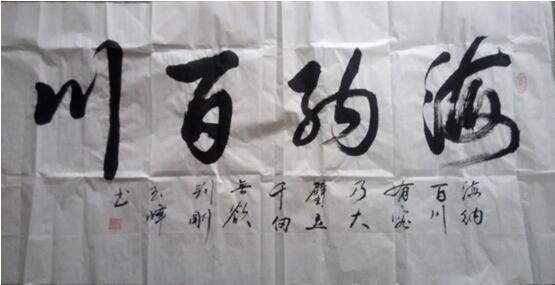 海纳百川
海纳
百川
有容
乃大
壁立
千仞
無欲
则刚
书